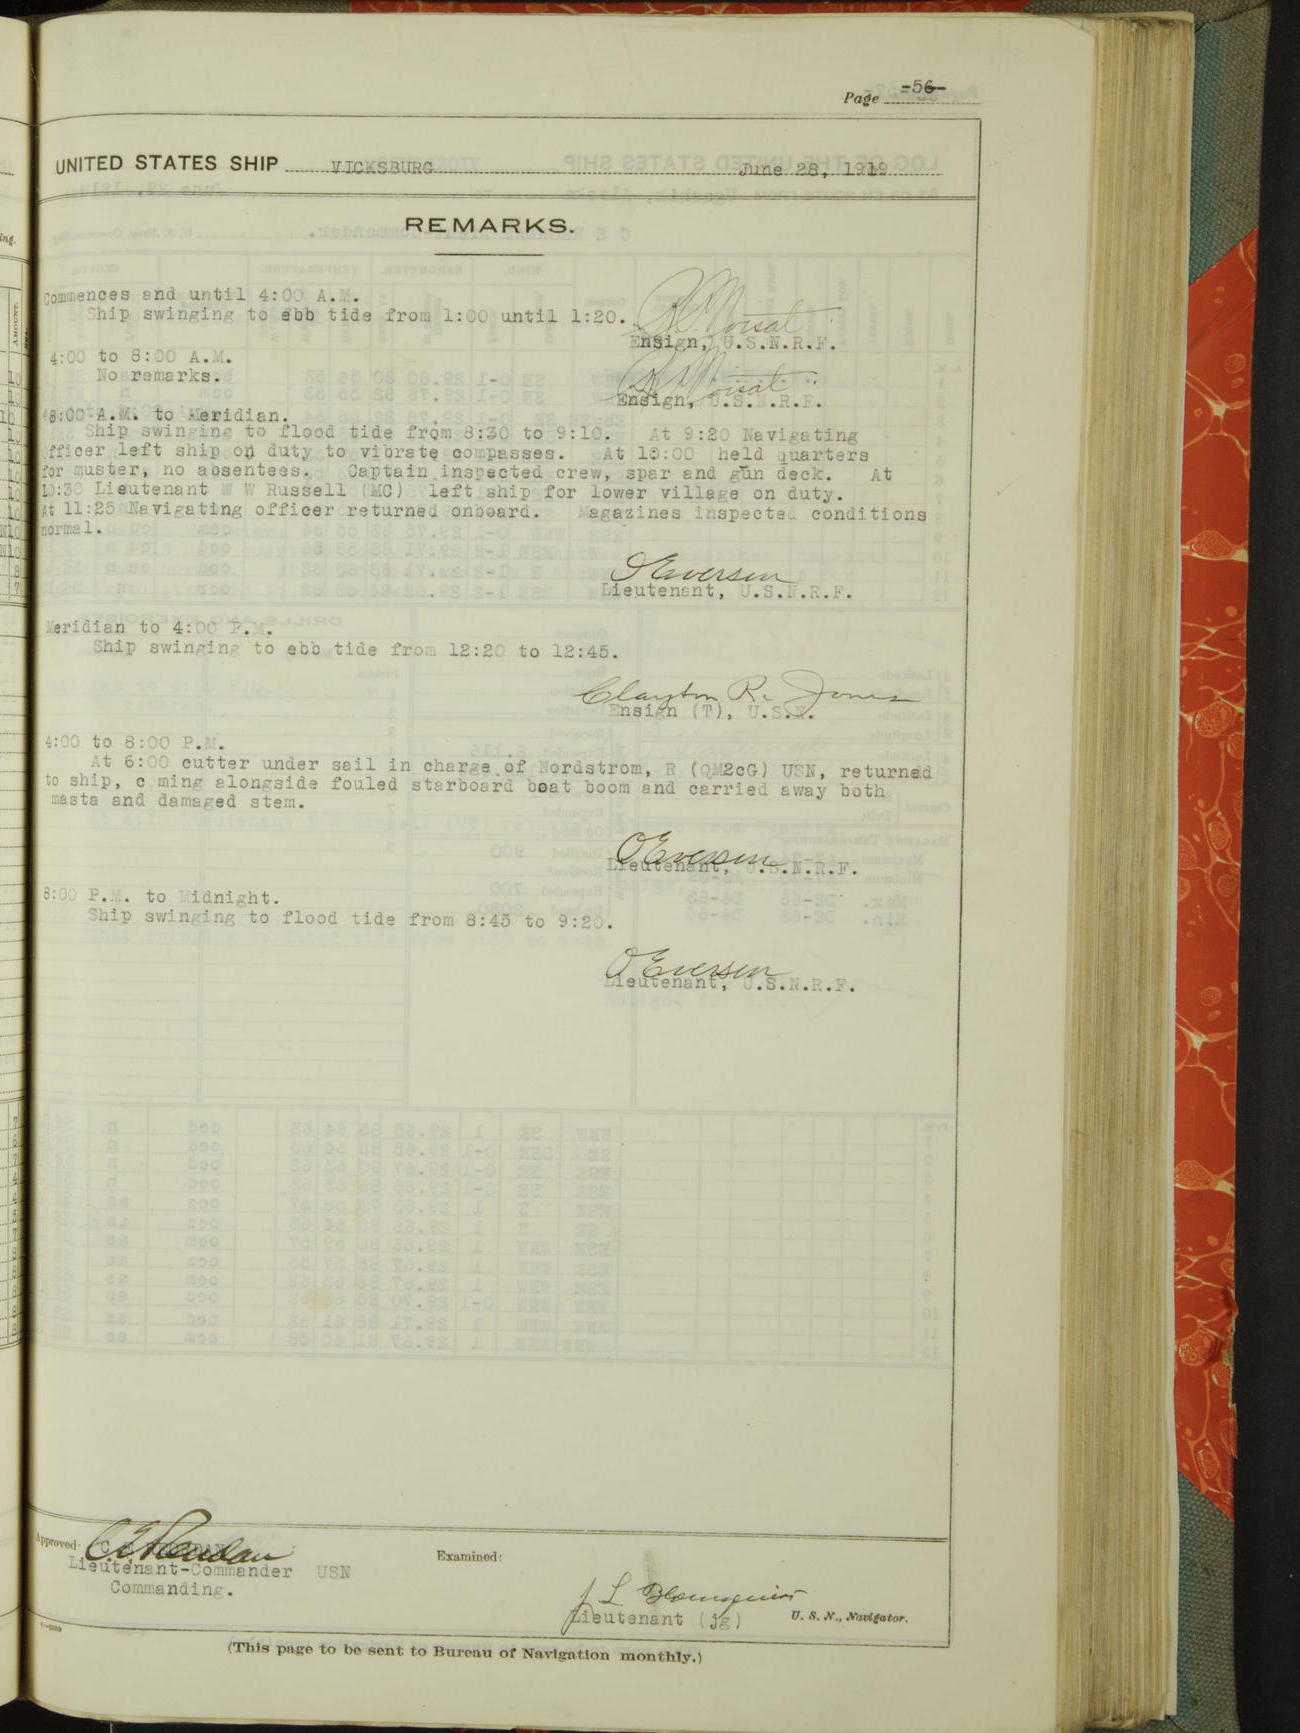 Page -56-
UNITED STATES SHIP VICKSBURG June 28, 1919
REMARKS.
Commences and until 4:00 A.M.
Ship swinging to ebb tide from 1:00 until 1:20.
Ensign, U.S.N.R.F.
4:00 to 8:00 A.M.
No remarks.
Ensign, U.S.N.R.F.
8:00 A.M. to Meridian.
Ship swinging to flood tide from 8:30 to 9:10. At 9:20 Navigating
Officer left ship on duty to vibrate compasses. At 10:00 held quarters
for muster, no absentees. Captain inspected crew, spar and gun deck. At
10:30 Lieutenant W W Russell (MC) left ship for lower village on duty.
At 11:25 Navigating officer returned onboard. Magazines inspected conditions
normal.
O Eversen
Lieutenant, U.S.N.R.F.
Meridian to 4:00 P.M.
Ship swinging to ebb tide from 12:20 to 12:45.
Clayton R. Jones
Ensign (T), U.S.N.
4:00 to 8:00 P.M.
At 6:00 cutter under sail in charge of Nordstrom, R (QM2cG) USN, returned
to ship, c ming alongside fouled starboard boat boom and carried away both
masta and damaged stem.
O Eversen
Lieutenant, U.S.N.R.F.
8:00 P.M. to Midnight.
Ship swinging to flood tide from 8:45 to 9:20.
O Eversen
Lieutenant, U.S.N.R.F.
Approved:
Lieutenant-Commander USN
Commanding.
Examined:
J L
Lieutenant (jg) U. S. N., Navigator.
(This page to be sent to Bureau of Navigation monthly.)